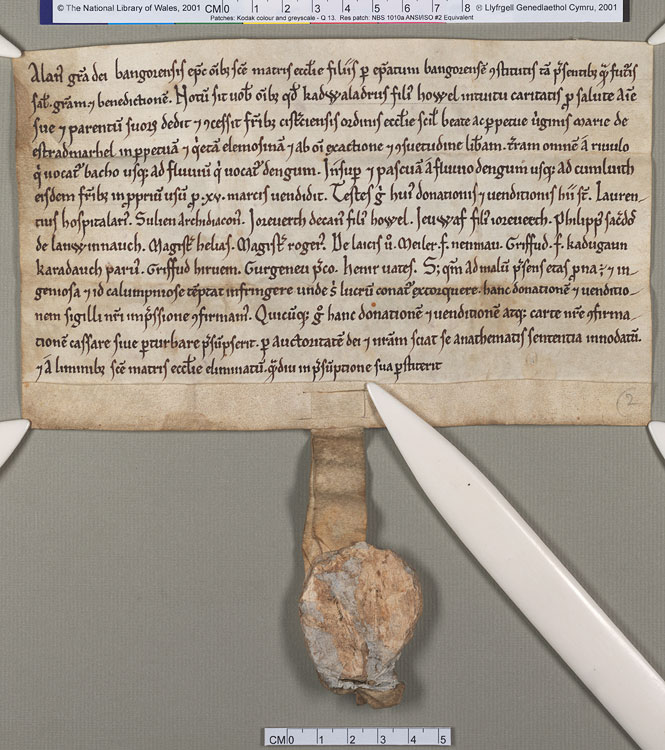 © The National Library of Wales, 2001 CM 0 1 2 3 4 5 6 7 8 ® Llyfrgell Genedlaethol Cymru, 2001
Patches: Kodak colour and greyscale - Q 13. Res patch: NBS 1010a ANSI/ISO #2 Equivalent
Alanꝰ gr̄a dei bangorensis ep̄c om̄ibꝫ sc̄e matris eccl̄ie filiis ꝑ ep̄atum bangorensē ꝯstitutis tā p̄sentibꝫ q̄ᵐ futis
sal̄. gr̄am ⁊ benedictionē. Notū sit uob̄ om̄ibꝫ qd̄ kadwaladrus filiꝰ howel intuitu caritatis ꝓ salute aīe
sue ⁊ parentū suoꝝ dedit ⁊ ꝯcessit fr̄ibꝫ cisterciensis ordinis eccl̄ie scil̄ beate ac ꝑpetue uirginis marie de
estradmarhel in ꝑpetuā ⁊ qͥetā elemosinā ⁊ ab om̄i exactione ⁊ ꝯsuetudine lib̄am. tr̄am omnē a riuulo
qͥ uocatᷣ bacho usqꝫ ad fluuiū qͥ uocatᷣ dengum. Insuꝑ ⁊ pascuā a fluuio dengum usqꝫ ad cumluith
eisdem fr̄ibꝫ in ꝓpriū usū ꝓ .xv. marcis uendidit. Testes gͦ huiꝰ donationis ⁊ uenditionis hii st̄. Lauren-
cius hospitalarꝰ. Sulien Archidiacon̄. Ioreuerth decanꝰ filiꝰ howel. Ieuwaf filiꝰ ioreuerth. Philippꝰ sac̄dos
de lanwinnauch. Magist̄ helias. Magist̄ rogerꝰ. De laicis ū. Meiler .f. nenmau. Griffud .f. kadugaun
karadauch paruꝰ. Griffud hiruein. Gurgeneu p̄co. Henir uates. Sꝫ qm̄ ad malū p̄sens etas ꝓna ē ⁊ in-
geniosa ⁊ id calumpniose tēptat infringere unde s̄ lucrū conatᷣ extorquere. hanc donationē ⁊ uenditio-
nem sigilli nr̄i inp̄ssione ꝯfirmamꝰ. Quicūqꝫ gͦ hanc donationē ⁊ uenditionē atqꝫ carte nr̄e ꝯfirma-
tionē cassare siue ꝑturbare p̄sūpserit. ꝑ auctoritatē dei ⁊ nr̄am sciat se anathematis sententia innodatū.
⁊ a liminibꝫ sc̄e matris eccl̄ie eliminatū. qᵐdiu in p̄sūptione sua ꝑstiterit
2
CM 0 1 2 3 4 5